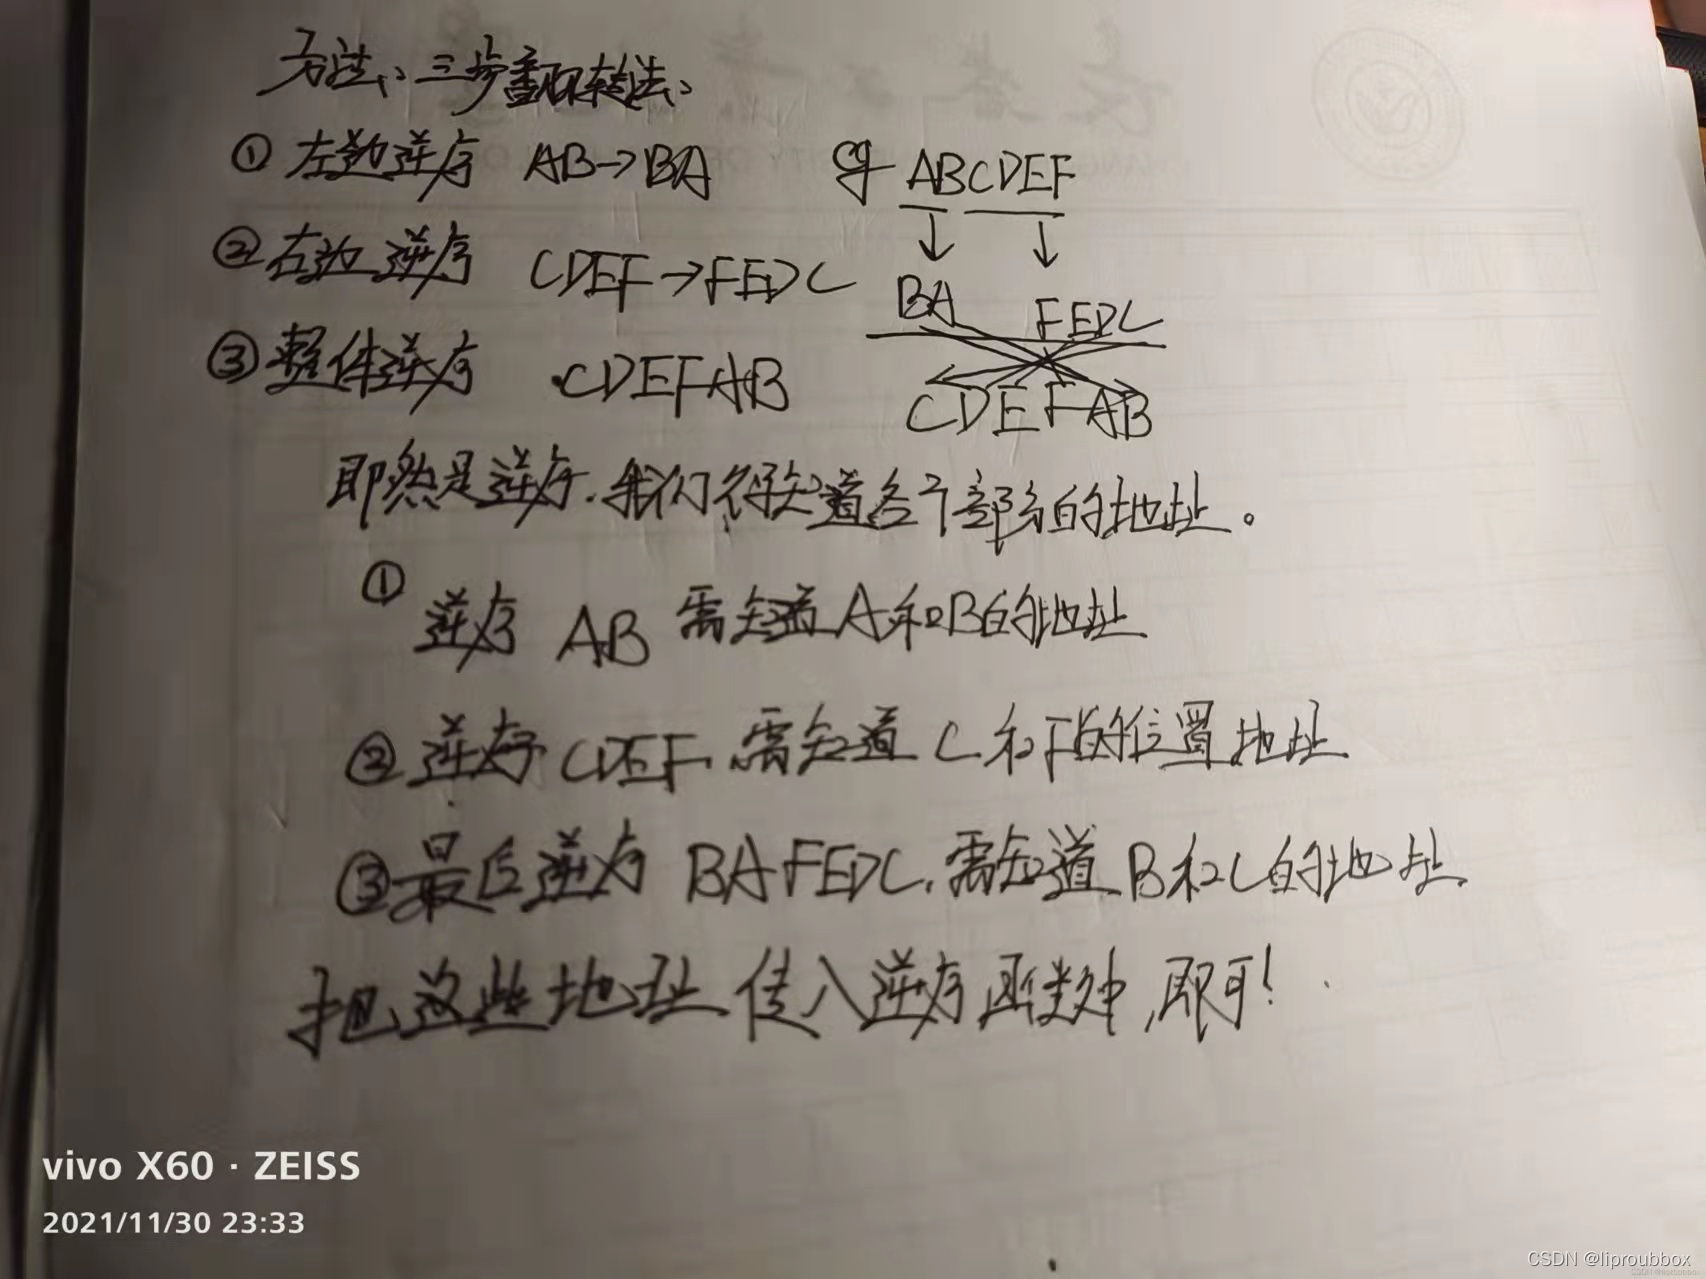 方法：三步翻转法：
① 左边逆序 AB→BA
② 右边逆序 CDEF→FEDC
③ 整体逆序 CDEFAB
eg ABCDEF
BA FEDC
CDEFAB
即然是逆序，我们得知道各个部分的地址。
① 逆序 AB 需知道A和B的地址
② 逆序 CDEF，需知道 C和F的位置地址
③ 最后逆序 BAFEDC，需知道 B和C的地址
把这些地址传入逆序函数中，即可！
vivo X60 · ZEISS
2021/11/30 23:33
CSDN @liproubbox